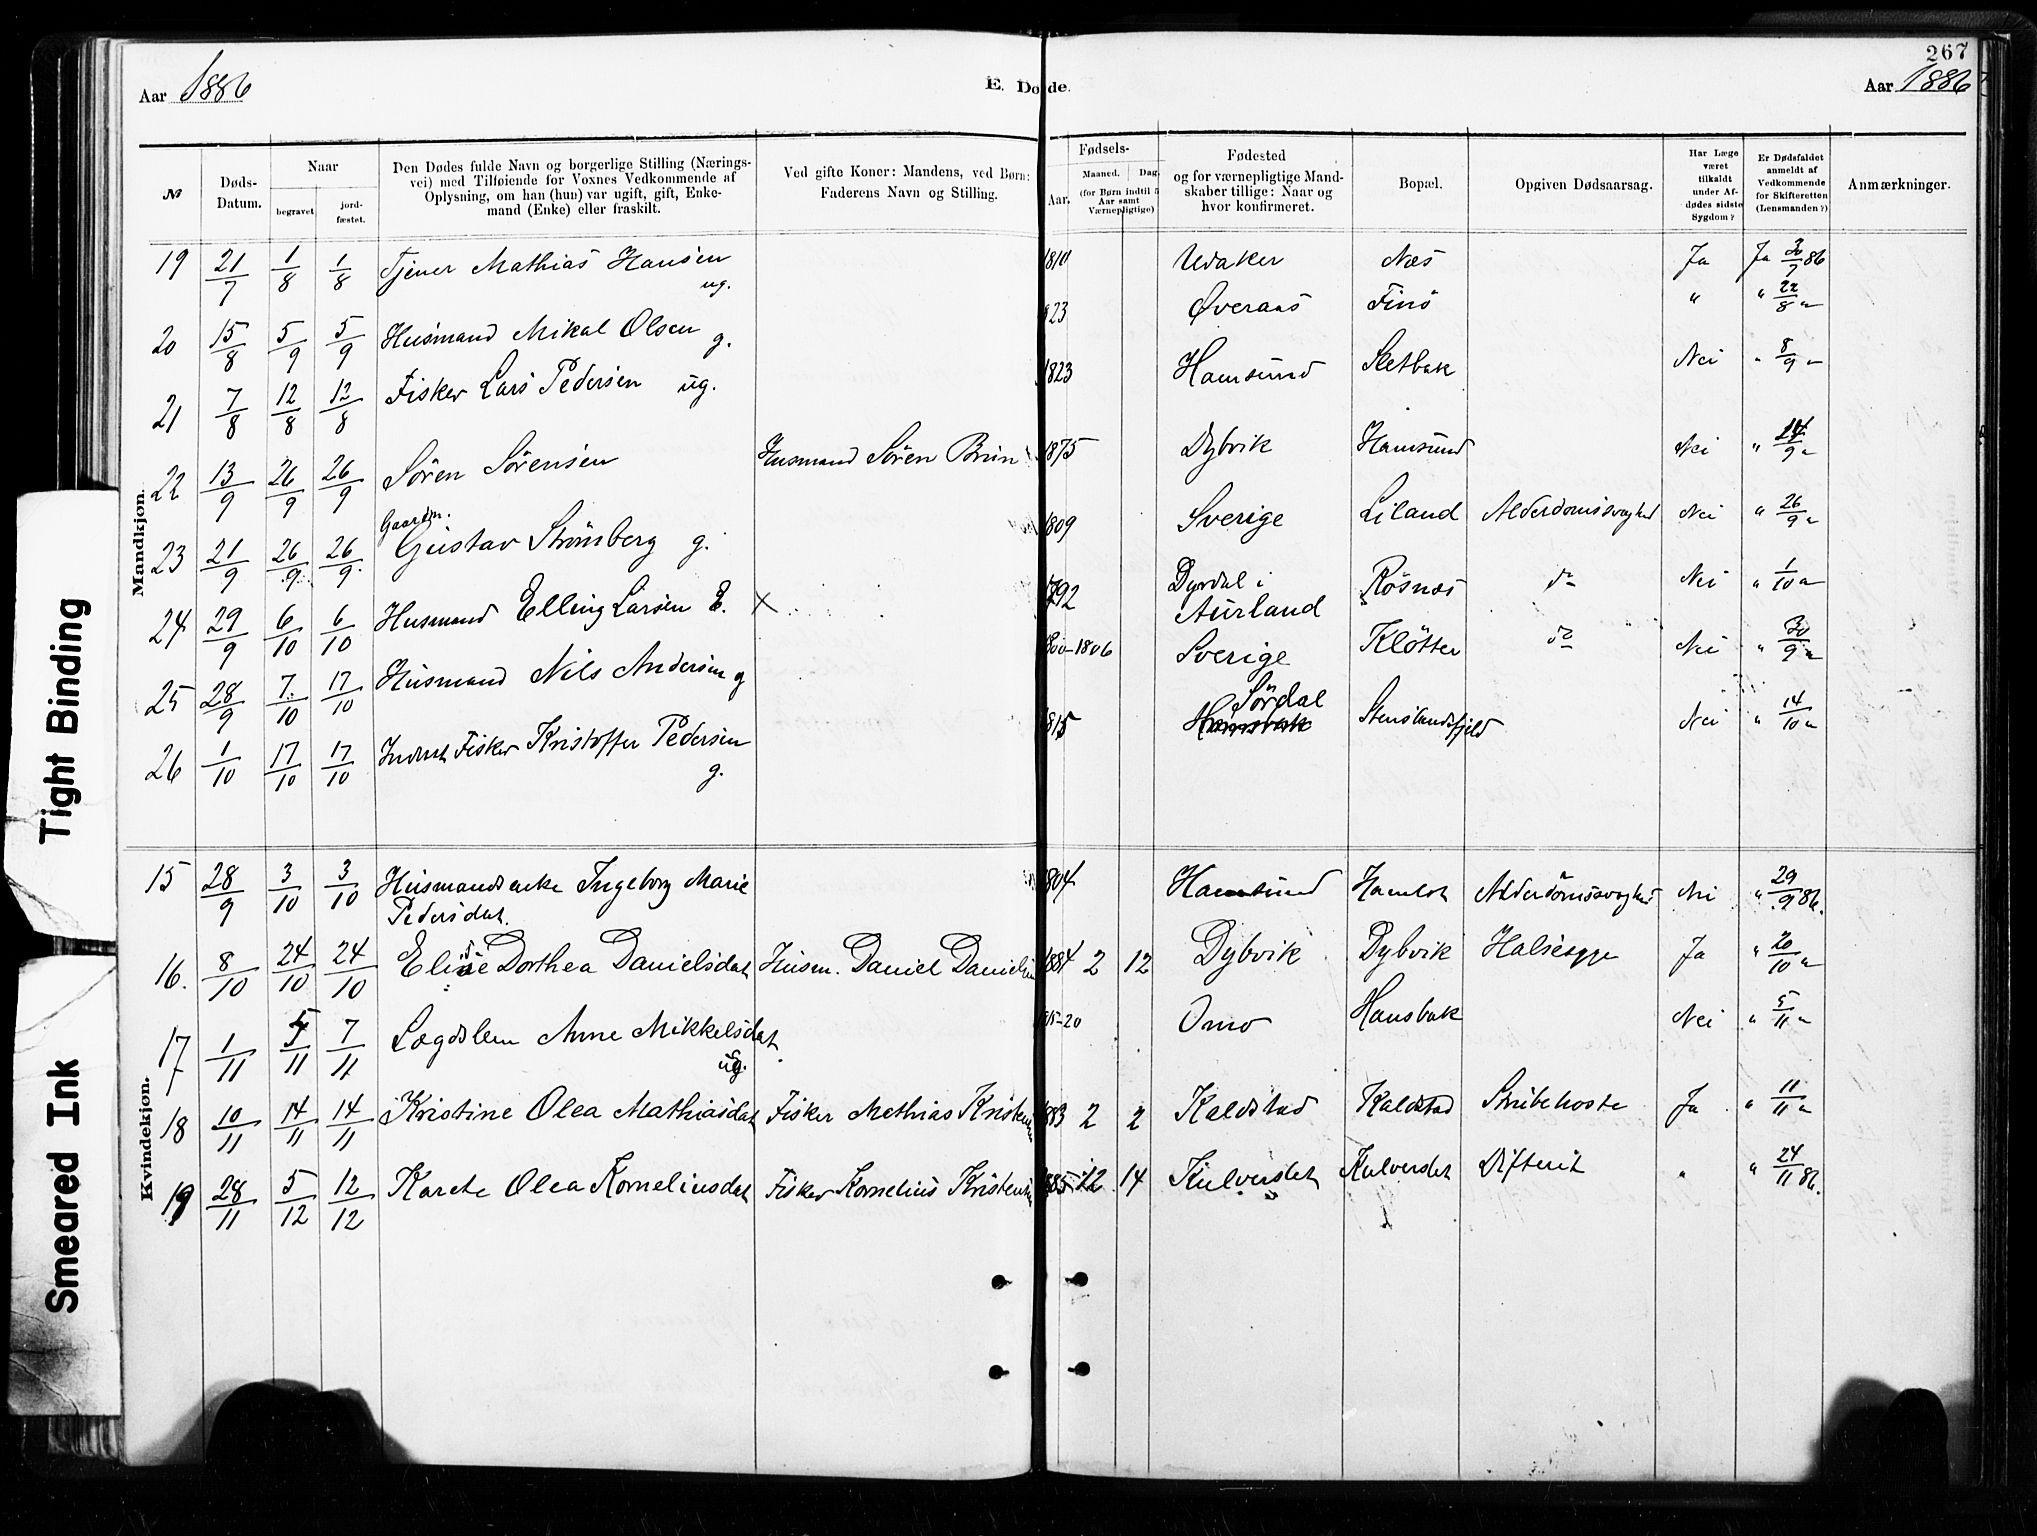 267
Aar 1886 E. Døde. Aar 1886
№
Døds-Datum.
Naar
begravet
jordfæstet.
Den Dødes fulde Navn og borgerlige Stilling (Næringsvei) med Tilføiende for Voxnes Vedkommende af Oplysning, om han (hun) var ugift, gift, Enkemand (Enke) eller fraskilt.
Ved gifte Koner: Mandens, ved Børn: Faderens Navn og Stilling.
Fødsels-
Aar.
Maaned. Dag.
(for Børn indtil 5 Aar samt Værnepligtige)
Fødested og for værnepligtige Mandskaber tillige: Naar og hvor konfirmeret.
Bopæl.
Opgiven Dødsaarsag.
Har Læge været tilkaldt under Afdødes sidste Sygdom?
Er Dødsfaldet anmeldt af Vedkommende for Skifteretten (Lensmanden?)
Anmærkninger.
Mandkjøn.
19 21/7 1/8 1/8 Tjener Mathias Hansen ug. 1810 Udaker Næs Ja Ja 30/7 86
20 15/8 5/9 5/9 Husmand Mikal Olsen g. 23 Øveraas Finö " " 22/8 "
21 7/8 12/8 12/8 Fisker Lars Pedersen ug. 1823 Hamsund Sletbak Nei " 8/9 "
22 13/9 26/9 26/9 Søren Sørensen Husmand Søren Brun 1875 Dybvik Hamsund Nei " 24/9 "
23 21/9 26/9 26/9 Gaardm. Gustav Strømberg g. 1809 Sverige Liland Alderdomssvaghed Nei " 26/9 "
24 29/9 6/10 6/10 Husmand Elling Larsen E. X 1792 Dyrdal i Aurland Røsnæs do Nei " 1/10 "
25 28/9 7/10 17/10 Husmand Nils Andersen g 1800-1806 Sverige Kløtter do Nei " 30/9 "
26 1/10 17/10 17/10 Inderst Fisker Kristoffer Pedersen g. 1815 Sørdal Stenslandsfjeld Nei " 14/10 "
Kvindekjøn.
15 28/9 3/10 3/10 Husmandsenke Ingeborg Marie Pedersdat. 1804 Hamsund Hamlot Alderdomssvaghed Nei " 29/9 86.
16. 8/10 24/10 24/10 Elise Dorthea Danielsdat Husm. Daniel Danielsen 1884 2 12 Dybvik Dybvik Halsesyge Ja " 20/10 "
17 1/11 5/11 7/11 Lægdslem Anne Mikkelsdat ug. 1815-20 Omo Hansbak Nei " 5/11 "
18 10/11 14/11 14/11 Kristine Olea Mathiasdat Fisker Mathias Kristensen 1883 2 2 Kaldstad Kaldstad Strubehoste Ja " 11/11 "
19 28/11 5/12 12/12 Karete Olea Korneliusdat Fisker Kornelius Kristensen 1885 12 14 Kulverdet Kulverdet Difterit " " 24/11 86.
Tight Binding
Smeared Ink